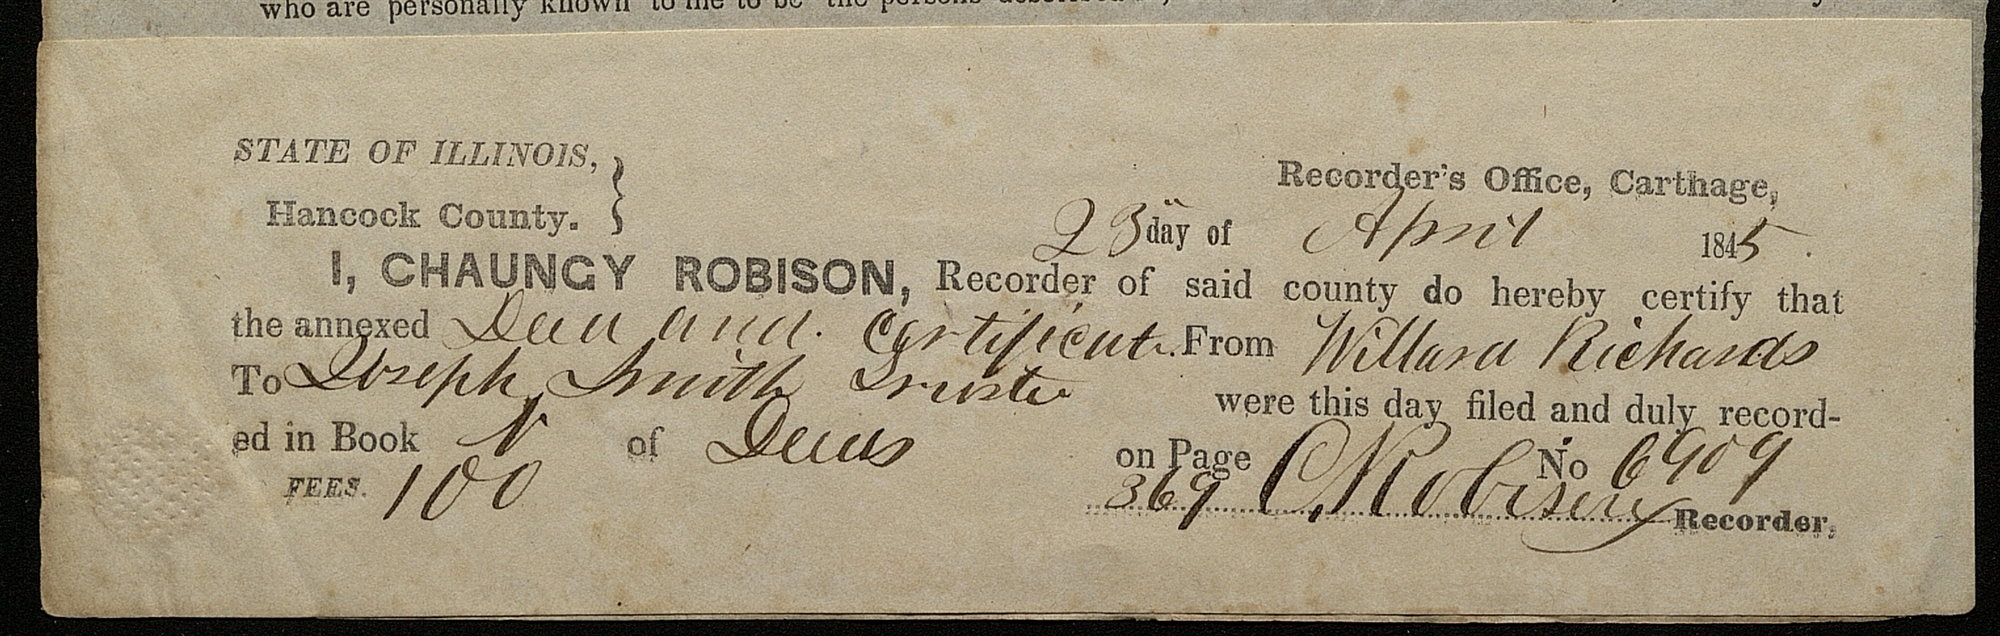 who are personally known to me to be the persons
STATE OF ILLINOIS, }
Hancock County. }
Recorder's Office, Carthage,
23 day of April 1845.
I, CHAUNGY ROBISON, Recorder of said county do hereby certify that
the annexed Deed and Certificate. From Willard Richards
To Joseph Smith Trustee were this day filed and duly record-
ed in Book N of Deeds on Page 369 No 6909
FEES. 100 C, Robison Recorder.